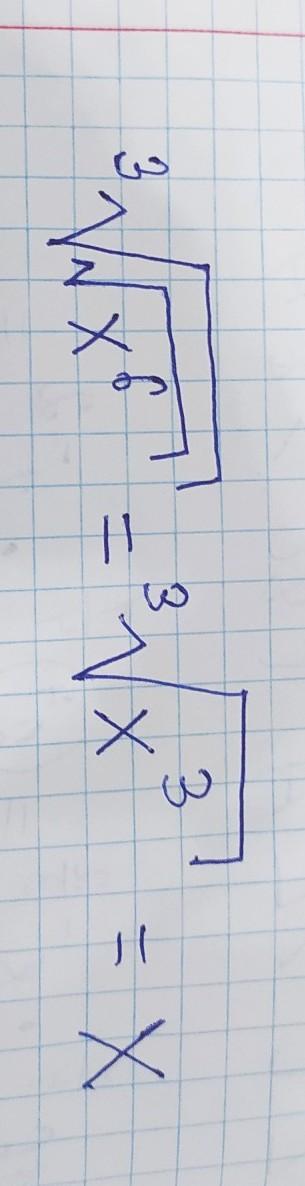 ³√√x⁶ = ³√x³ = x